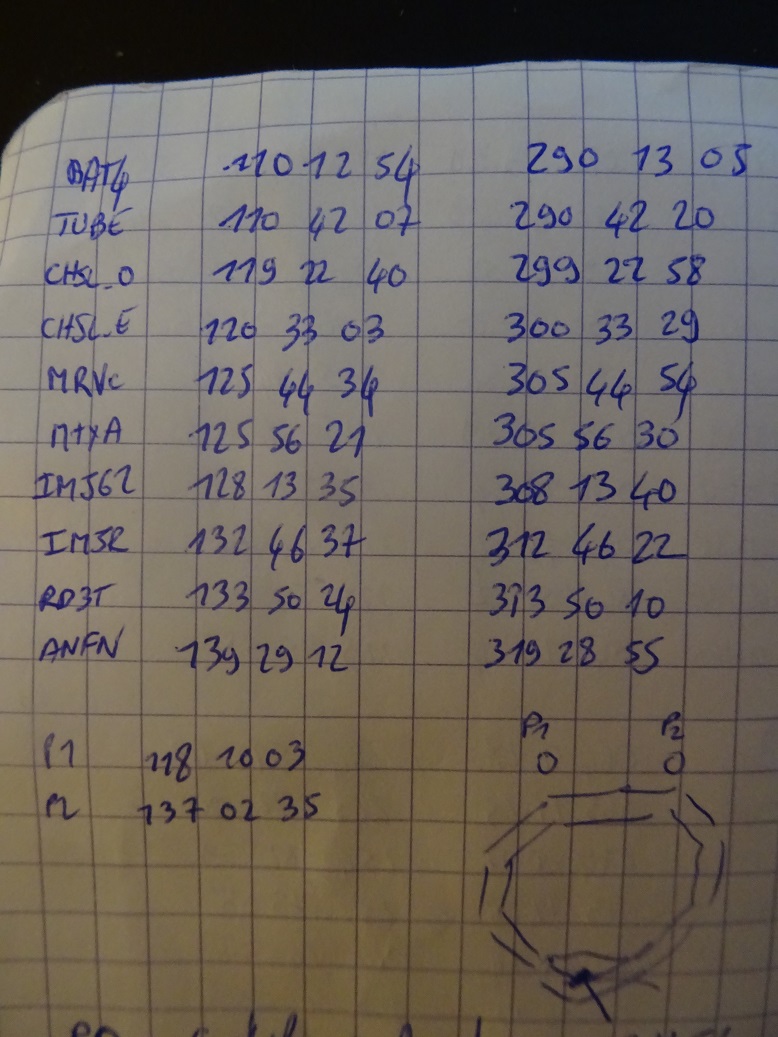 BAT4 110 12 54 290 13 05
TUBE 110 42 07 290 42 20
CHSL_O 119 22 40 299 22 58
CHSL_E 120 33 03 300 33 29
MRVC 125 44 34 305 44 54
MTXA 125 56 21 305 56 30
128 13 35 308 13 40
132 46 37 312 46 22
RD3T 133 50 24 313 50 10
ANFN 139 29 12 319 28 55
P1 P2
P1 118 10 03
P2 137 02 35